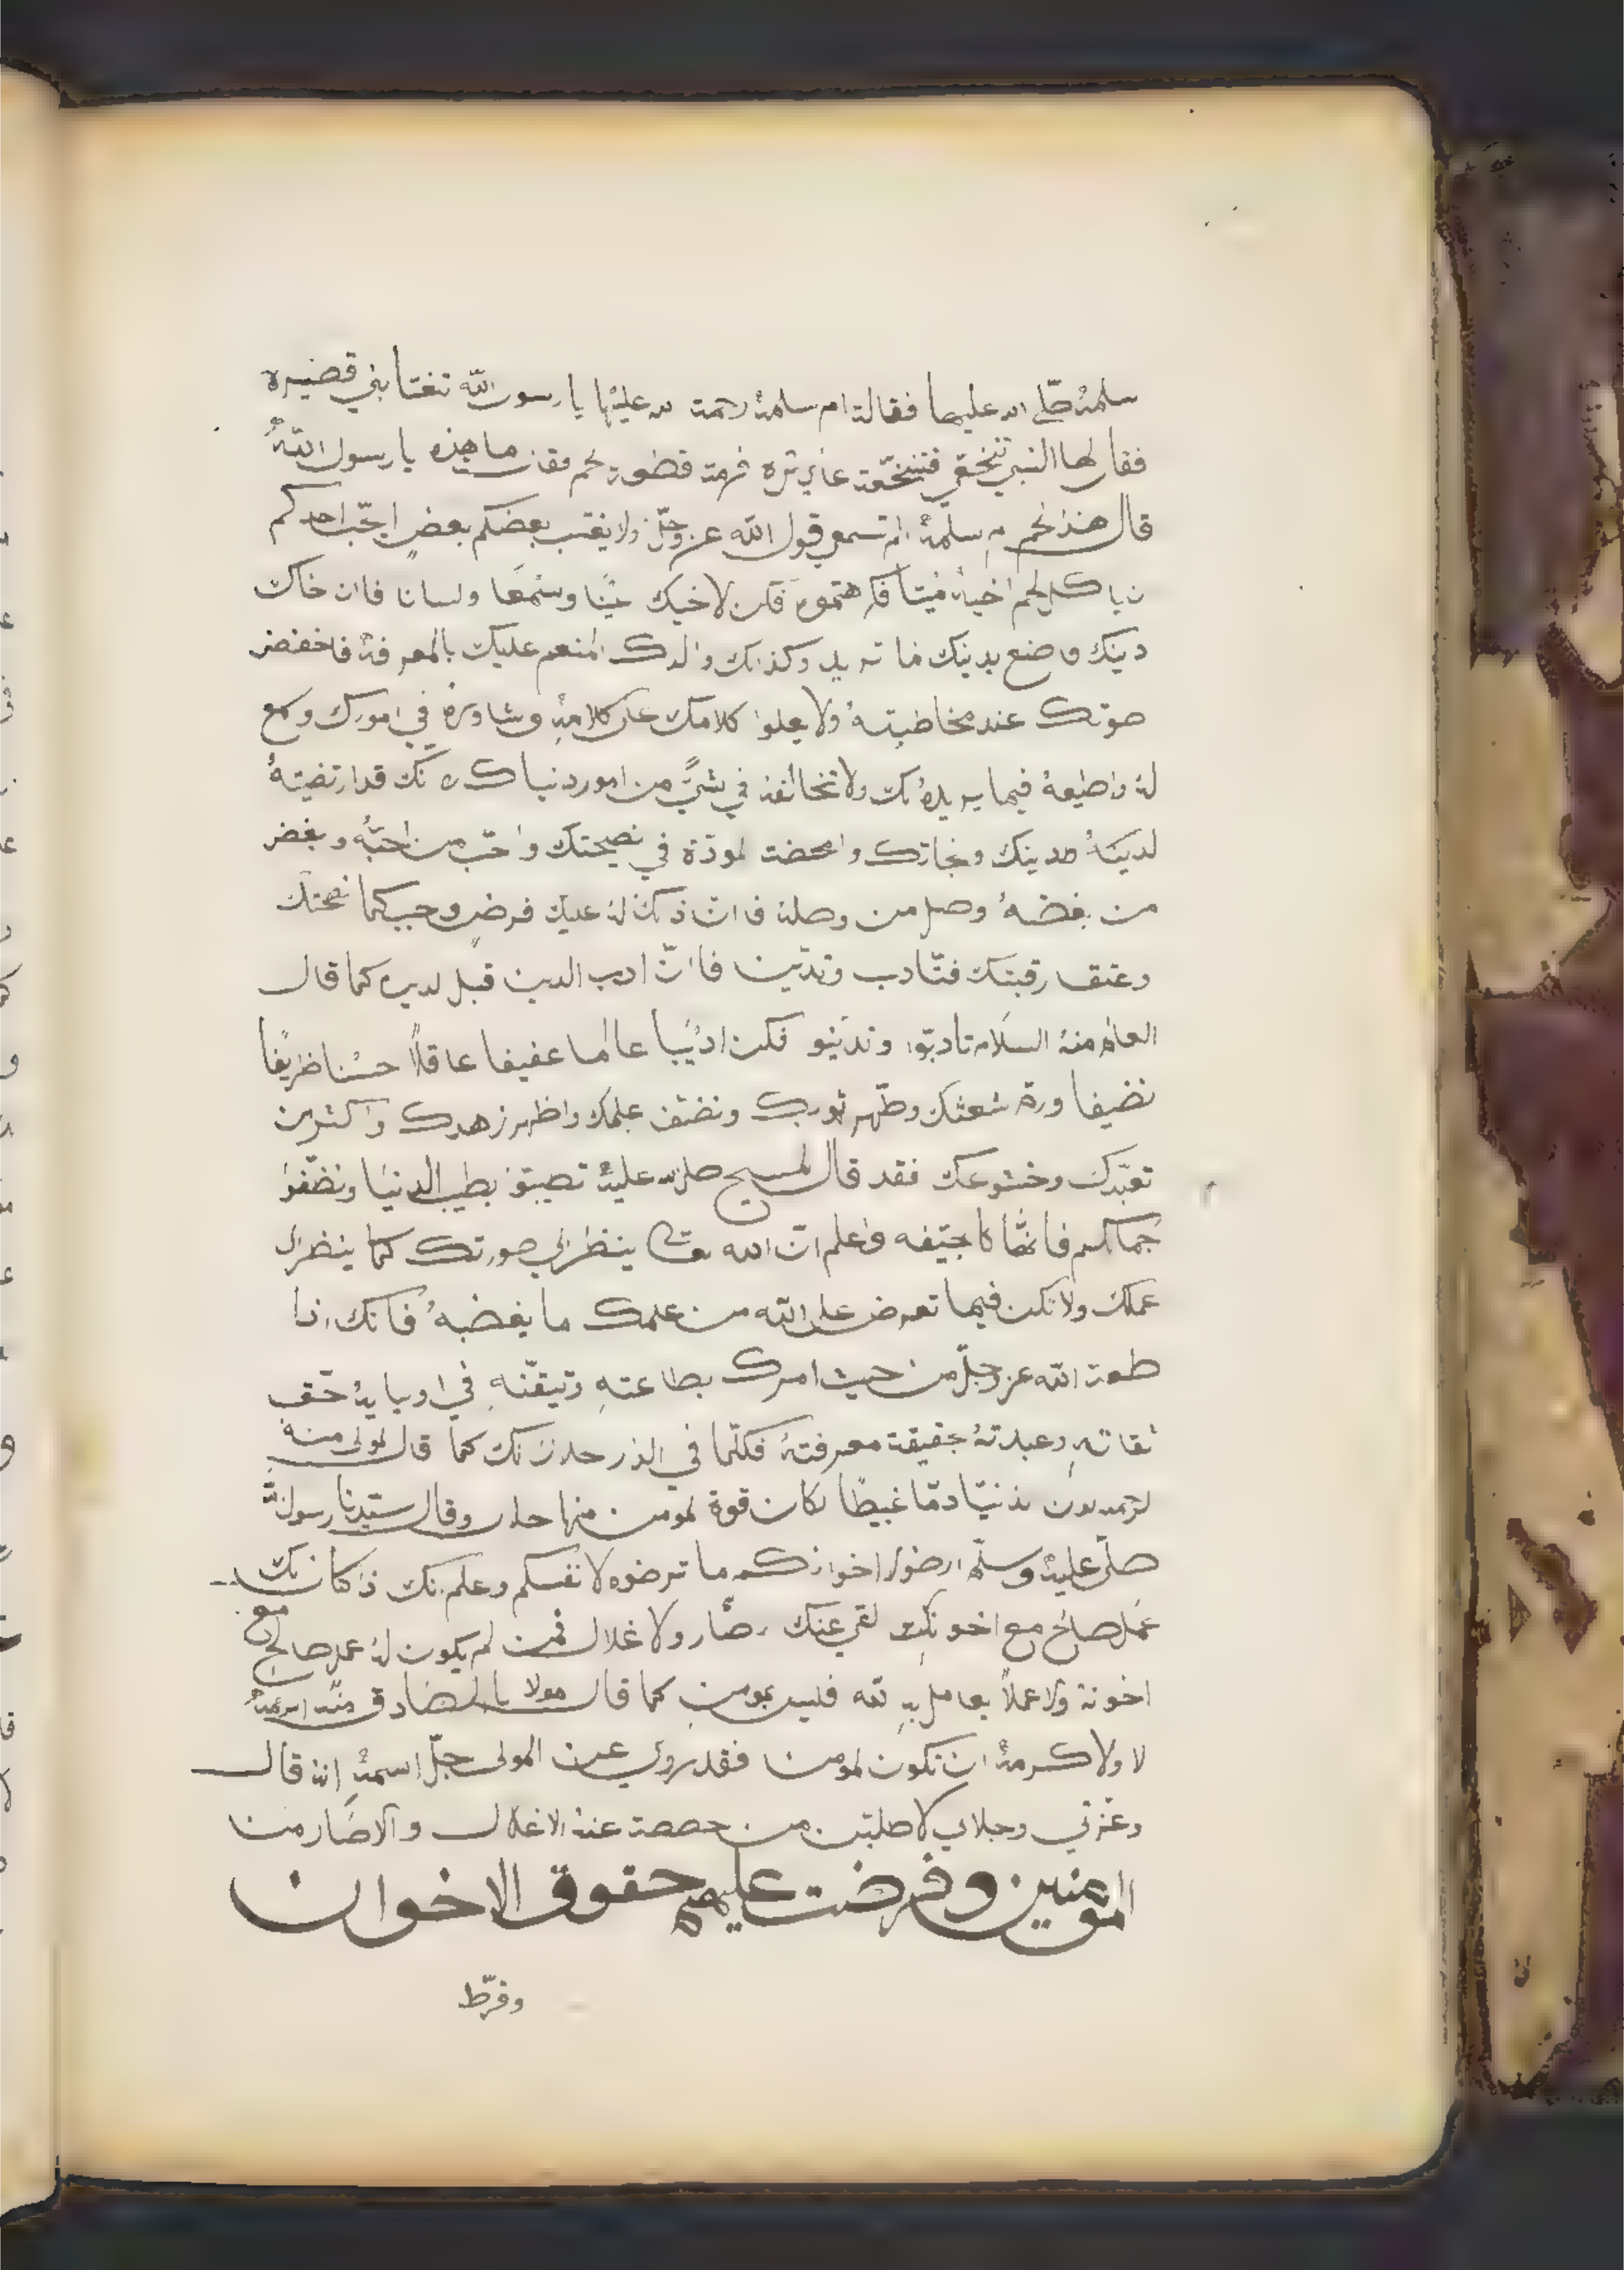 سلمة صلى الله عليها فقالت ام سلمة رحمت الله عليها يا رسول الله تغتابني قصيره
فقال لها النبي تنخعي فتنخعت فرمت لحم فقالت ما هذه يا رسول الله
قال هذا لحم ام سلمة الم تسمعي قول الله عز وجل ولا يغتب بعضكم بعض ايحب احدكم
ان ياكل لحم اخيه ميتا فكرهتموه فكن لاخيك عينًا وسمعًا ولسانا فان خاك
دينك فاصنع بدينك ما تريد وكذلك والدك المنعم عليك بالمعرفة فاخفض
صوتك عند مخاطبته ولا يعلوا كلامك على كلامه وشاوره في امورك وسمع
له واطيعه فيما يريده لك ولا تخالفه في شيً من امور دنياك لانك قد ارتضيته
لدينه لدينك ونجاتك وامحضت المودّة في نصيحتك واحب من احبّه وبغض
من بغضه وصل من وصله فانّ ذلك له عليك فرض وجب كما نصحك
وعتق رقبتك فتّادب وتديّن فانّ ادب الدين قبل الدين كما قال
العالم منه السلام تادبّوا وتدينو فكن اديبا عالما عفيفا عاقلًا حسنا ظريفا
نضيفا ورم شعثك وطهر ثوبك ونضف علمك واظهر زهدك واكثر من
تعبّدك وخشوعك فقد قال المسيح صل الله عليه بطيب الدنيا ونضّفوا
فانها كا جيفه واعلم انّ الله تعالى ينظر الى صورتك كما ينظر الى
عملك ولا تكن فيما تعرض على الله من علمك ما يغضبه فانك اذا
طعت الله عز وجل من حيث امرك بطاعته
تقاته وعبدته حقيقة معرفته فكلّما في الذر حلال لك كما قال المولى منه
الرحمه لون الدنيا دمّا غبيطا لكان قوة المومن منها حلال وقال سيّدنا رسول الله
صلى عليه وسلّم ارضوا لاخوانكم ما ترضوه لانفسكم وعلم انك ذا كان لك
عمل صالح مع اخونك لقي عنك اصار ولا غلال فمن لم يكون له عمل صالح مع
اخونه ولا عملًا يعامل به الله فليس بمومن كما قال مولانا الصادق منه الرحمة
لا ولا كرمة ان تكون المومن فقد روي عن المولى جلّ اسمه انه قال
وعزّتي وجلالي لا صلبتن من حصصت عنه الاغلال والاصار من
المومنين وفرضت عليهم حقوق الاخوان
وفرّط